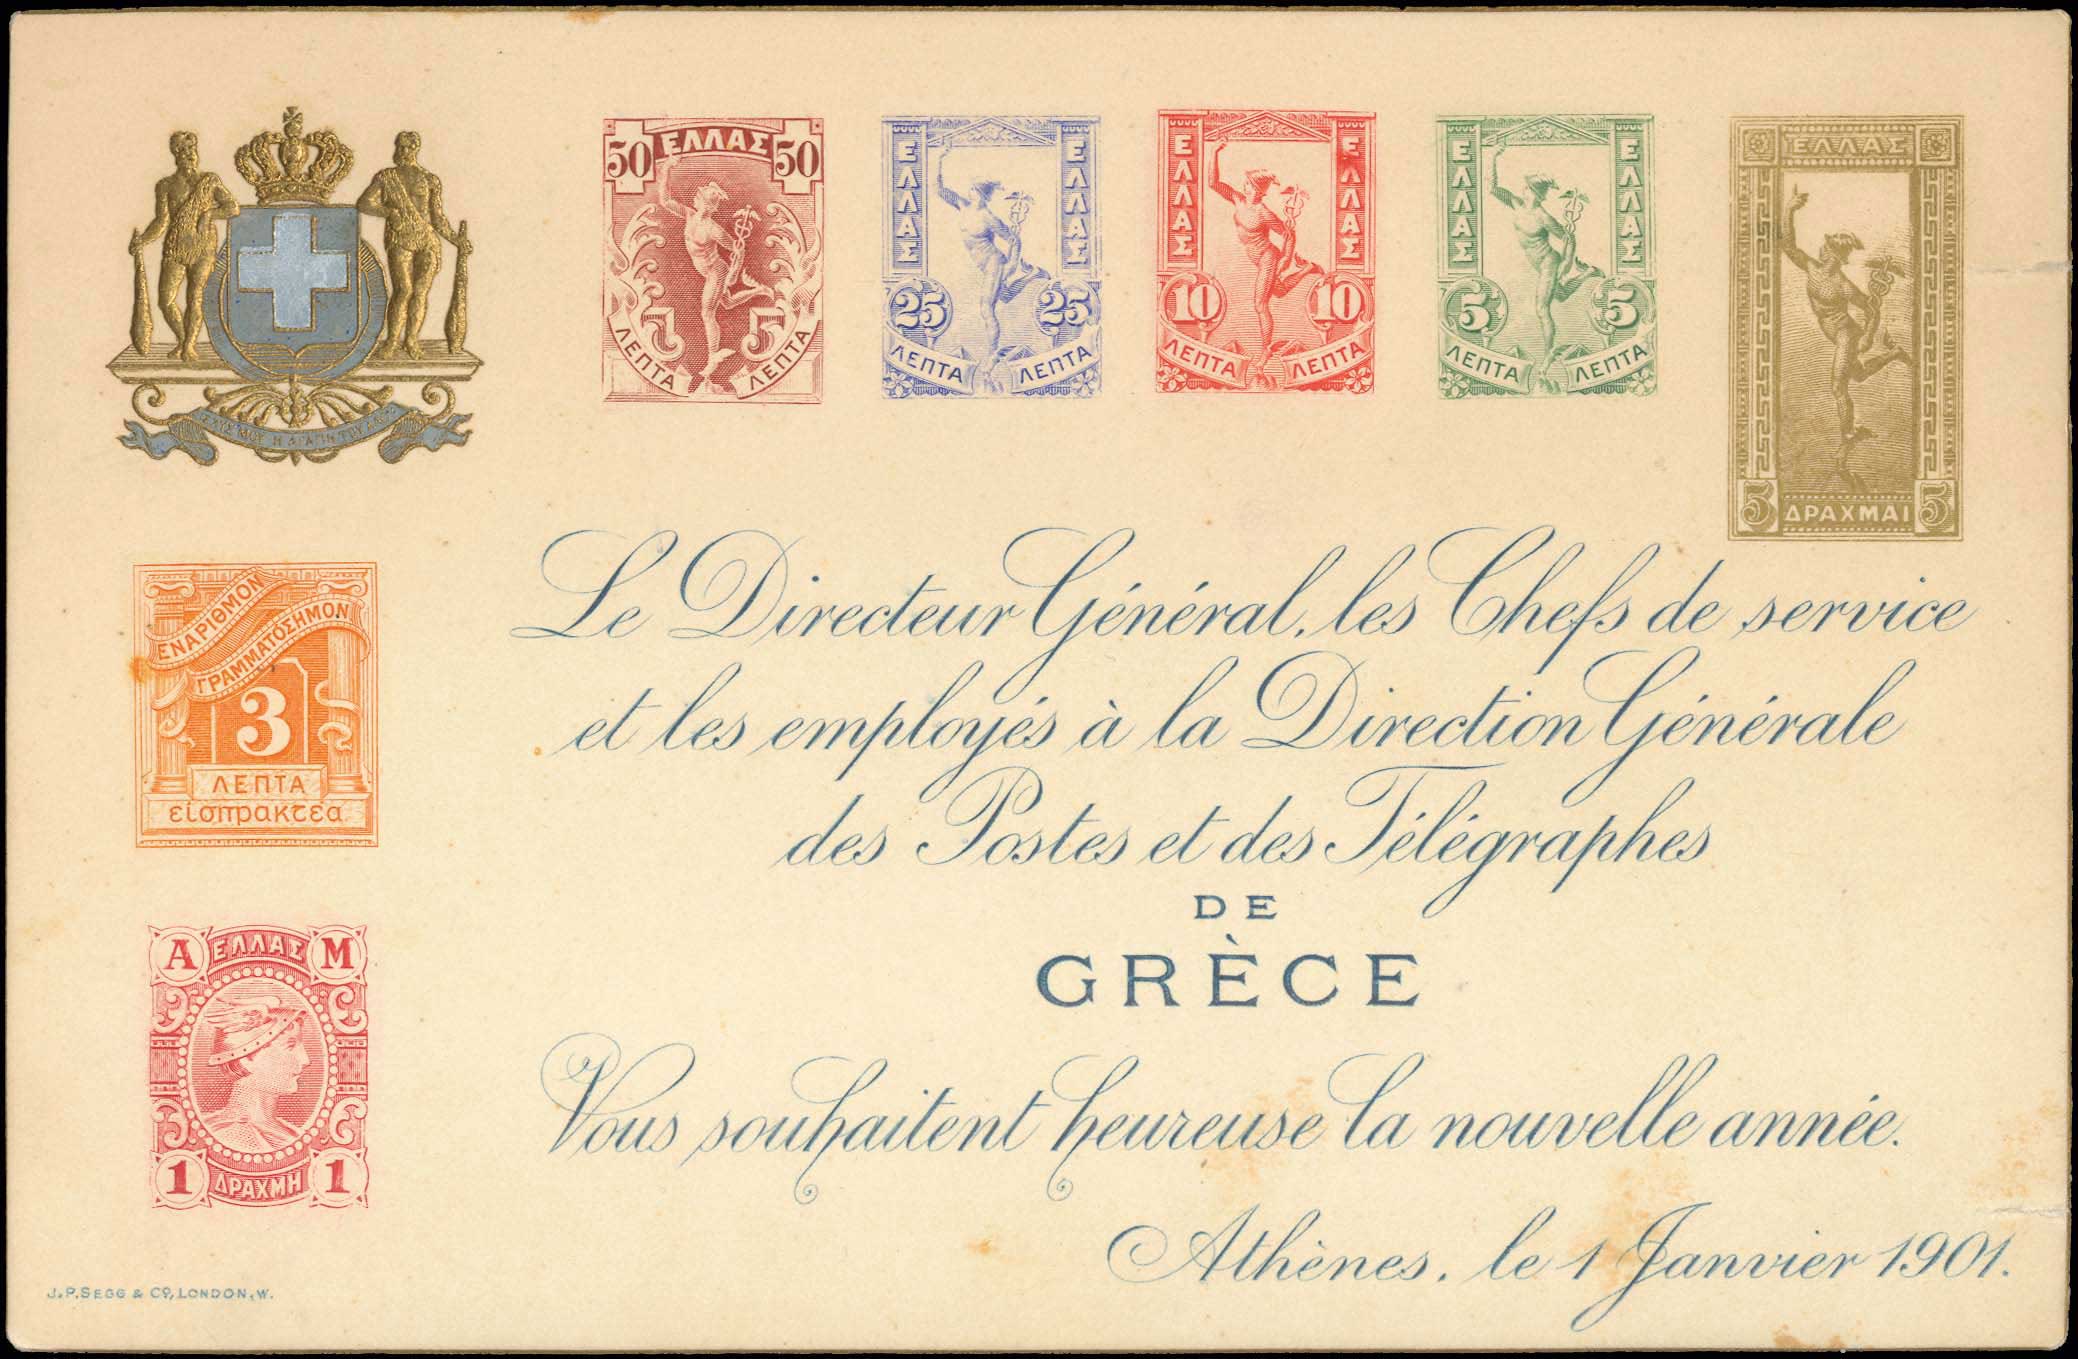 50 ΕΛΛΑΣ 50
ΛΕΠΤΑ ΛΕΠΤΑ
ΕΛΛΑΣ ΕΛΛΑΣ
25 25
ΛΕΠΤΑ ΛΕΠΤΑ
ΕΛΛΑΣ ΕΛΛΑΣ
10 10
ΛΕΠΤΑ ΛΕΠΤΑ
ΕΛΛΑΣ ΕΛΛΑΣ
5 5
ΛΕΠΤΑ ΛΕΠΤΑ
ΕΛΛΑΣ
5 ΔΡΑΧΜΑΙ 5
ΙΣΧΥΣ ΜΟΥ Η ΑΓΑΠΗ ΤΟΥ ΛΑΟΥ
ΕΝΑΡΙΘΜΟΝ
ΓΡΑΜΜΑΤΟΣΗΜΟΝ
3
ΛΕΠΤΑ
εἰσπρακτέα
Α ΕΛΛΑΣ Μ
1 ΔΡΑΧΜΗ 1
Le Directeur Général, les Chefs de service
et les employés à la Direction Générale
des Postes et des Télégraphes
DE
GRÈCE
Vous souhaitent heureuse la nouvelle année.
Athènes, le 1 Janvier 1901.
J.P. SEGG & Co, LONDON, W.